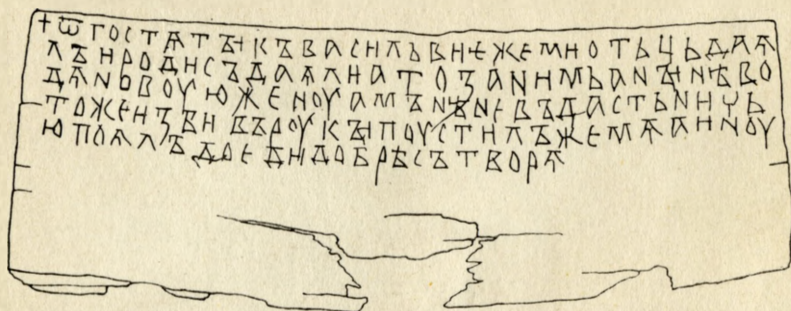 +ѾГОСТѦТЪІКЪВАСИЛЬВИЕЖЕМИОТЬЦЬДАѦ
ЛЪИРОДИСЪДАѦЛИАТОЗАНИМЬАНЪІНѢВО
ДѦНОВОУЮЖЕНОУАМЪНѢНЕВЪДАСТЬНИЧЬ
ТОЖЕИЗБИВЪРОУКЪІПОУСТИЛЪЖЕМѦАИНОУ
ЮПОѦЛЪДОЕДИДОБРѢСЪТВОРѦ